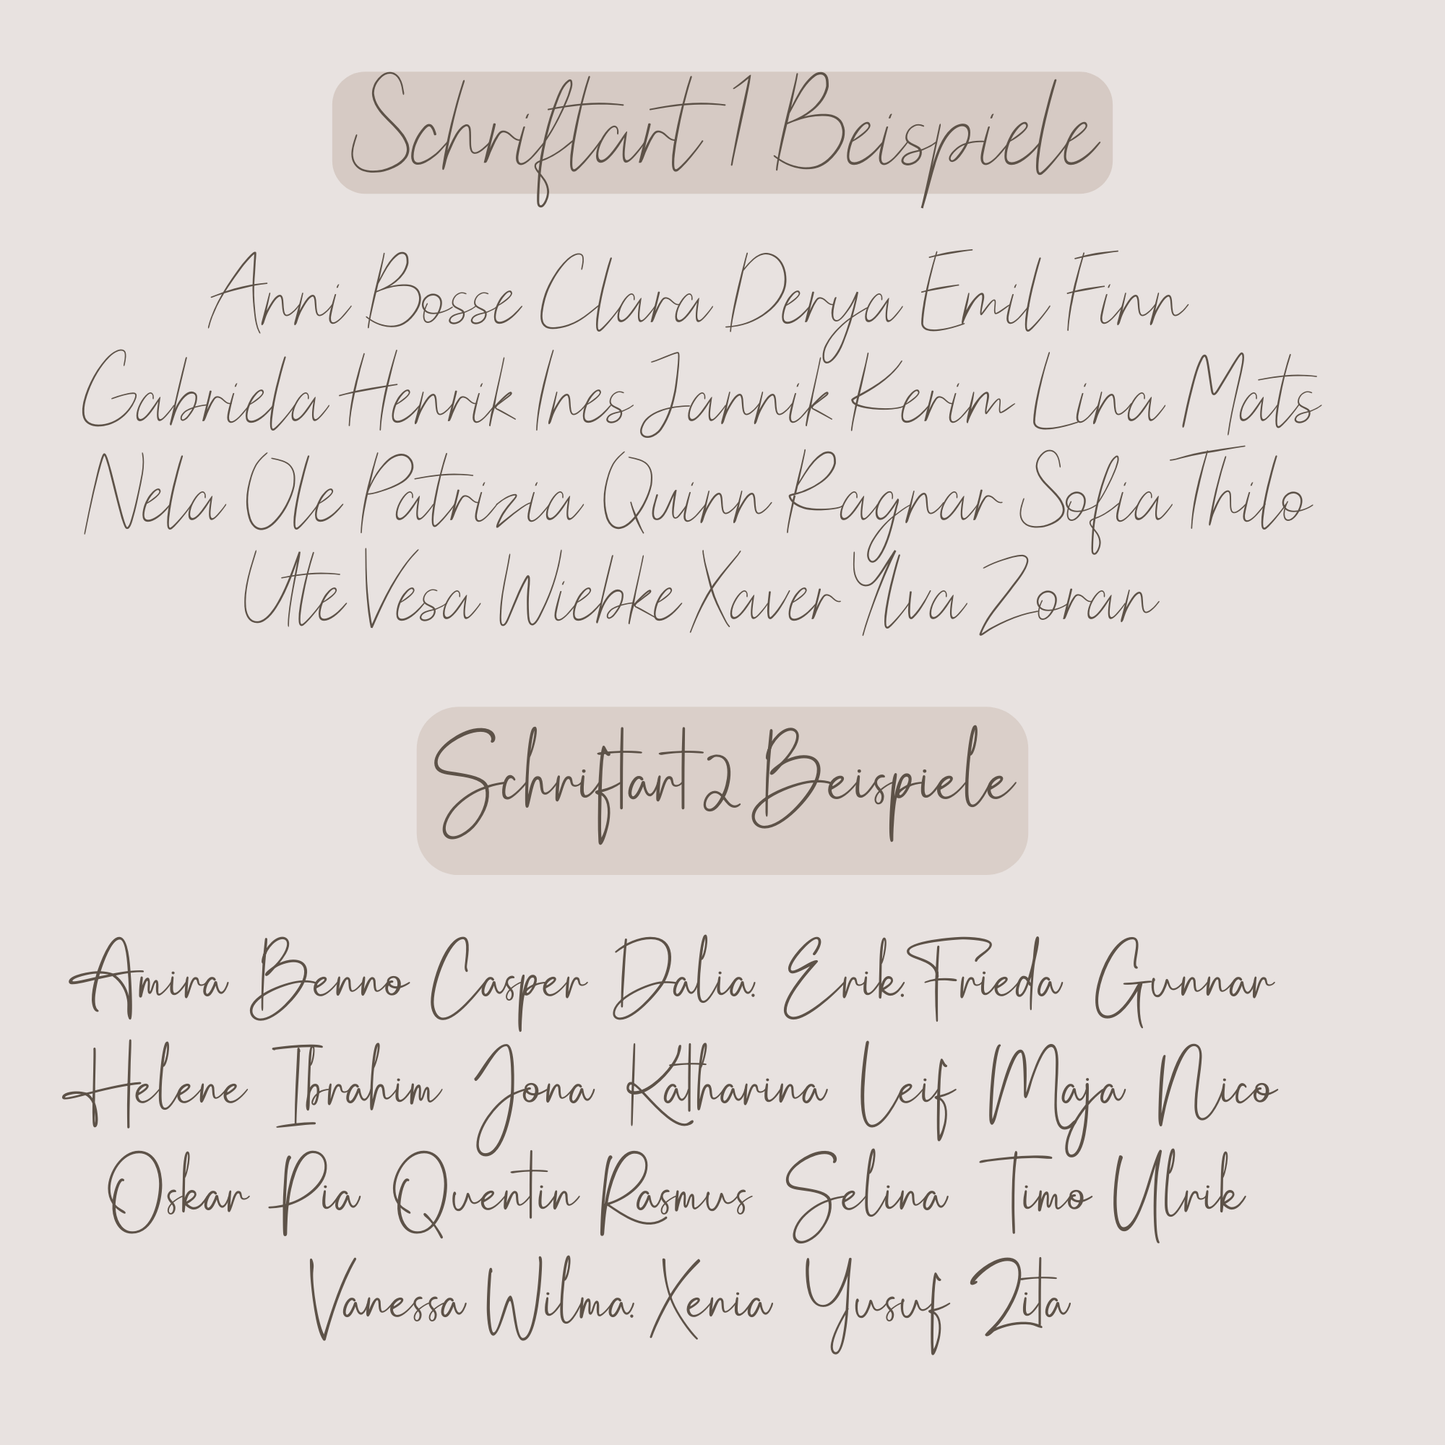 Schriftart 1 Beispiele
Anni Bosse Clara Derya Emil Finn
Gabriela Henrik Ines Jannik Kerim Lina Mats
Nela Ole Patrizia Quinn Ragnar Sofia Thilo
Ute Vesa Wiebke Xaver Ylva Zoran
Schriftart 2 Beispiele
Amira Benno Casper Dalia. Erik. Frieda Gunnar
Helene Ibrahim Jona Katharina Leif Maja Nico
Oskar Pia Quentin Rasmus Selina Timo Ulrik
Vanessa Wilma. Xenia Yusuf Zita